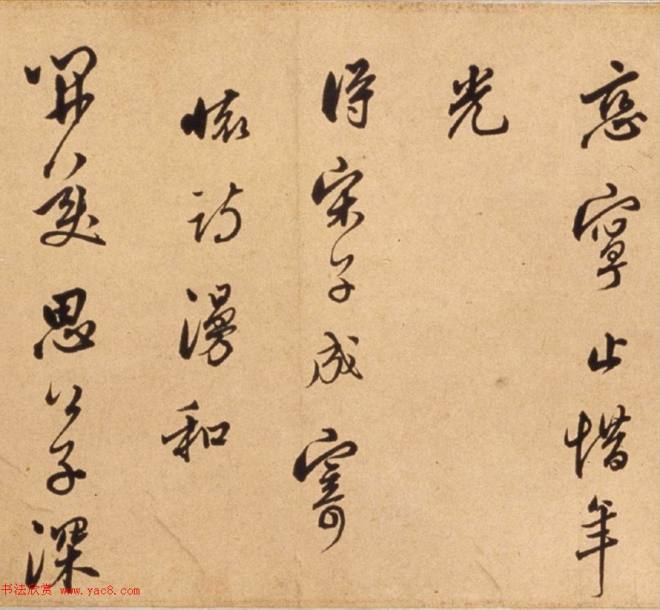 戀寧止惜年
光
得宋子成寄
懷詩漫和
思公子深
书法欣赏 www.yac8.com